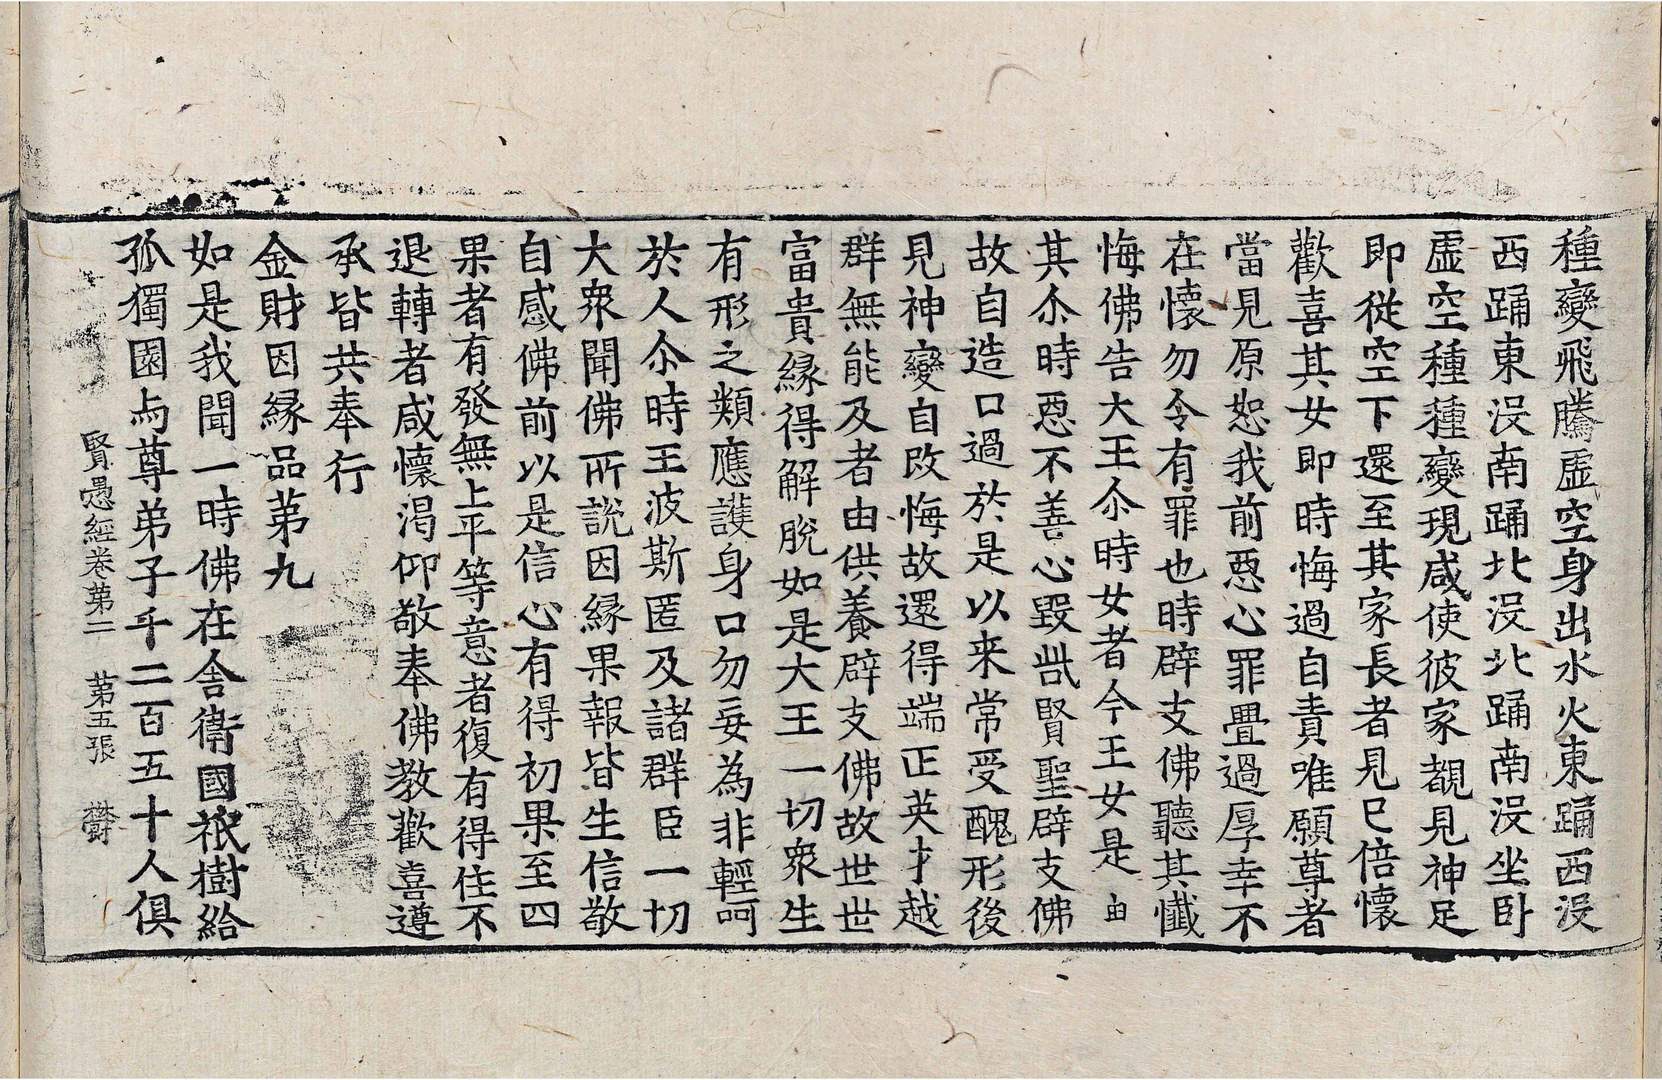 種變飛騰虛空身出水火東踊西没
西踊東没南踊北没北踊南没坐卧
虛空種種變現咸使彼家覩見神足
即從空下還至其家長者見已倍懷
歡喜其女即時悔過自責唯願尊者
當見原恕我前惡心罪畳過厚幸不
在懷勿令有罪也時辟支佛聽其懺
悔佛告大王尒時女者今王女是由
其尒時惡不善心毀呰賢聖辟支佛
故自造口過於是以来常受醜形後
見神變自改悔故還得端正英才越
群無能及者由供養辟支佛故世世
富貴縁得解脫如是大王一切衆生
有形之類應護身口勿妄為非輕呵
於人尒時王波斯匿及諸群臣一切
大衆聞佛所說因縁果報皆生信敬
自感佛前以是信心有得初果至四
果者有發無上平等意者復有得住不
退轉者咸懷渇仰敬奉佛教歡喜遵
承皆共奉行
金財因縁品第九
如是我聞一時佛在舍衛國祇樹給
孤獨園与尊弟子千二百五十人俱
賢愚經卷第二 第五張 欝